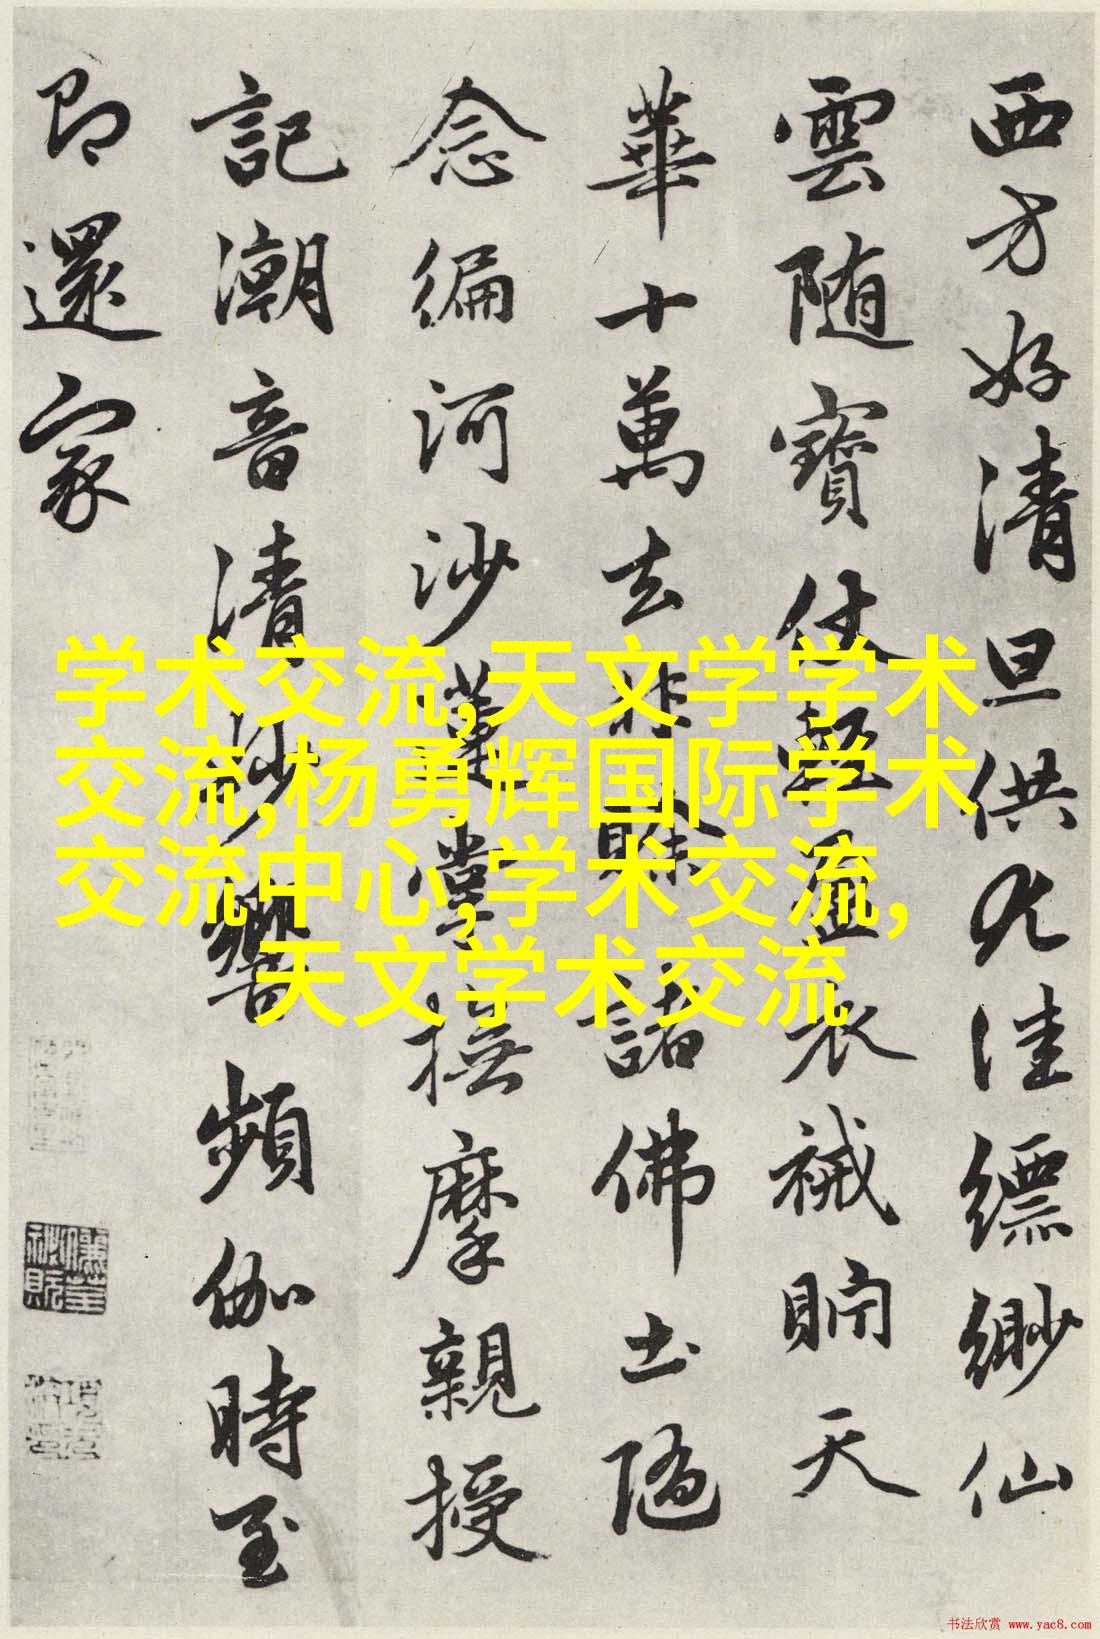 西方好清旦供尤佳縹緲仙
雲随寳仗輕盈衣裓貯天
華十萬去非賒諸佛土隨
念編河沙蓮掌撫摩親授
記潮音清妙響頻伽時至
即還家
学术交流,天文学学术
交流,杨勇辉国际学术
交流中心,学术交流,
天文学术交流
书法欣赏 www.yac8.com